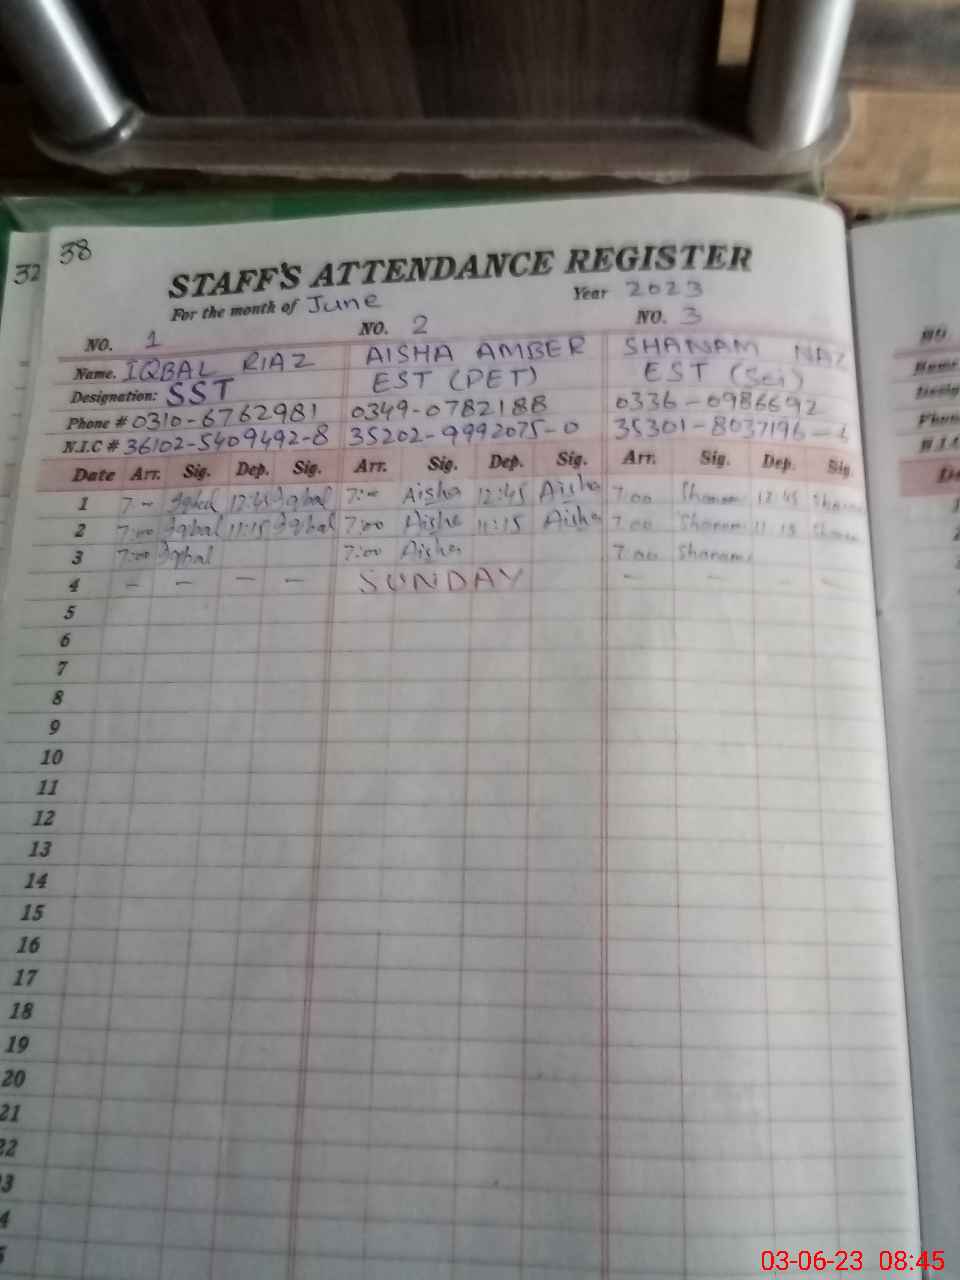 32
38
STAFF'S ATTENDANCE REGISTER
For the month of June Year 2023
NO. 1 NO. 2 NO. 3
Name. IQBAL RIAZ AISHA AMBER SHANAM NAZ
Designation: SST EST (PET) EST (Sci)
Phone # 0310-6762981 0349-0782188 0336-0986692
N.I.C # 36102-5409492-8 35202-9992075-0 35301-8037196-
Date Arr. Sig. Dep. Sig. Arr. Sig. Dep. Sig. Arr. Sig. Dep. Sig.
1 7:- Iqbal 12:45 Iqbal 7:- Aisha 12:45 Aisha 7.00 Shanam 12 45 Shanam
2 7:00 Iqbal 11:15 Iqbal 7:00 Aisha 11:15 Aisha 7.00 Shanam 11 15 Shanam
3 7:00 Iqbal 7:00 Aisha 7.00 Shanam
4 - - - - SUNDAY - - -
5
6
7
8
9
10
11
12
13
14
15
16
17
18
19
20
21
22
3
4
5
03-06-23 08:45